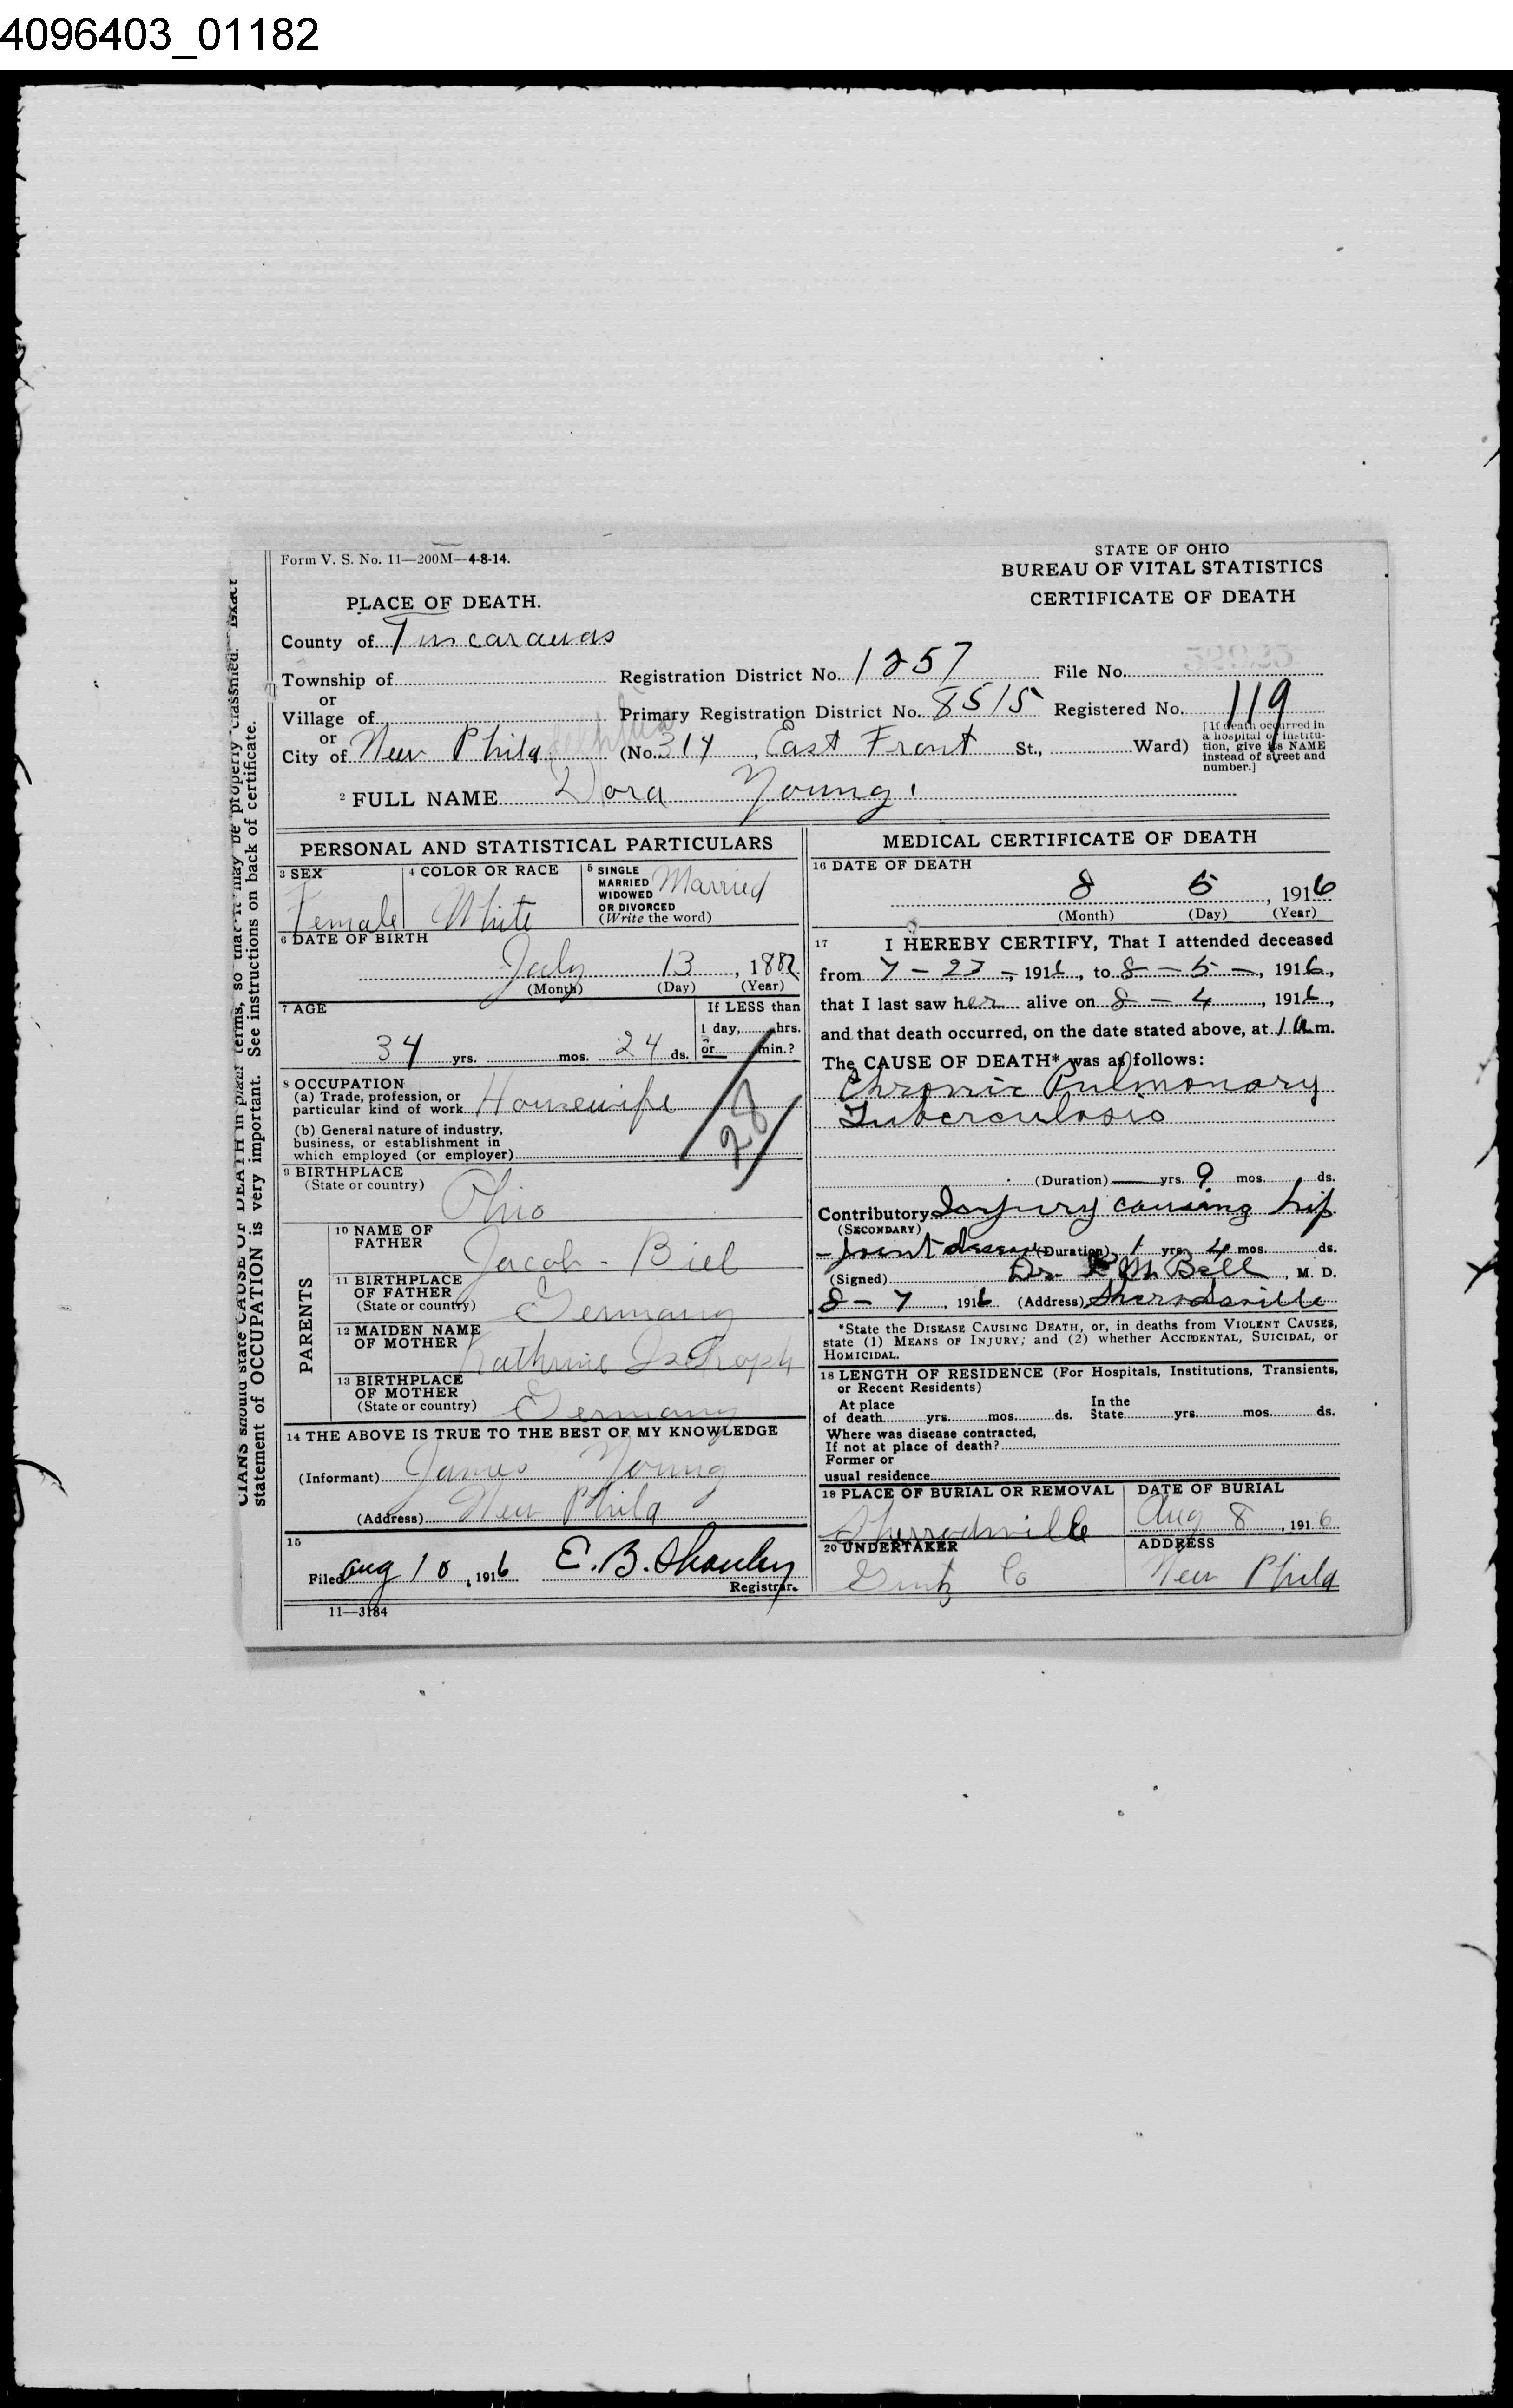 4096403_01182
Form V. S. No. 11—200M—4-8-14.
STATE OF OHIO
BUREAU OF VITAL STATISTICS
CERTIFICATE OF DEATH
PLACE OF DEATH.
County of Tuscarawas
Township of
Registration District No. 1257
File No.
or
Village of
Primary Registration District No. 8515
Registered No. 119
or
City of New Philadelphia
(No. 314, East Front St., Ward)
[If death occurred in
a hospital or institu-
tion, give its NAME
instead of street and
number.]
2 FULL NAME Dora Young
PERSONAL AND STATISTICAL PARTICULARS
3 SEX
Female
4 COLOR OR RACE
White
5 SINGLE
MARRIED
WIDOWED
OR DIVORCED
(Write the word)
Married
6 DATE OF BIRTH
July 13, 1882
(Month) (Day) (Year)
7 AGE
34 yrs. mos. 24 ds.
If LESS than
1 day, hrs.
or min.?
8 OCCUPATION
(a) Trade, profession, or
particular kind of work Housewife
(b) General nature of industry,
business, or establishment in
which employed (or employer)
28
9 BIRTHPLACE
(State or country)
Ohio
PARENTS
10 NAME OF
FATHER
Jacob Biel
11 BIRTHPLACE
OF FATHER
(State or country)
Germany
12 MAIDEN NAME
OF MOTHER
Kathrine
13 BIRTHPLACE
OF MOTHER
(State or country)
Germany
14 THE ABOVE IS TRUE TO THE BEST OF MY KNOWLEDGE
(Informant) James Young
(Address) New Phila
15
Filed Aug 10, 1916 E. B. Shanley
Registrar.
11—3184
MEDICAL CERTIFICATE OF DEATH
16 DATE OF DEATH
8 5, 1916
(Month) (Day) (Year)
17 I HEREBY CERTIFY, That I attended deceased
from 7-27-, 1916, to 8-5-, 1916,
that I last saw her alive on 8-4, 1916,
and that death occurred, on the date stated above, at 1 a.m.
The CAUSE OF DEATH* was as follows:
Chronic Pulmonary
Tuberculosis
(Duration) — yrs. 9 mos. ds.
Contributory Injury causing hip
(SECONDARY)
-joint disease (Duration) 1 yrs. 4 mos. ds.
(Signed) Dr. M. Bell, M. D.
8-7, 1916 (Address) Sherrodsville
*State the DISEASE CAUSING DEATH, or, in deaths from VIOLENT CAUSES,
state (1) MEANS OF INJURY; and (2) whether ACCIDENTAL, SUICIDAL, or
HOMICIDAL.
18 LENGTH OF RESIDENCE (For Hospitals, Institutions, Transients,
or Recent Residents)
At place
of death yrs. mos. ds.
In the
State yrs. mos. ds.
Where was disease contracted,
If not at place of death?
Former or
usual residence
19 PLACE OF BURIAL OR REMOVAL
Sherrodsville
DATE OF BURIAL
Aug 8, 1916
20 UNDERTAKER
Co
ADDRESS
New Phila
CIANS should state CAUSE OF DEATH in plain terms, so that it may be properly classified. Exact
statement of OCCUPATION is very important. See instructions on back of certificate.